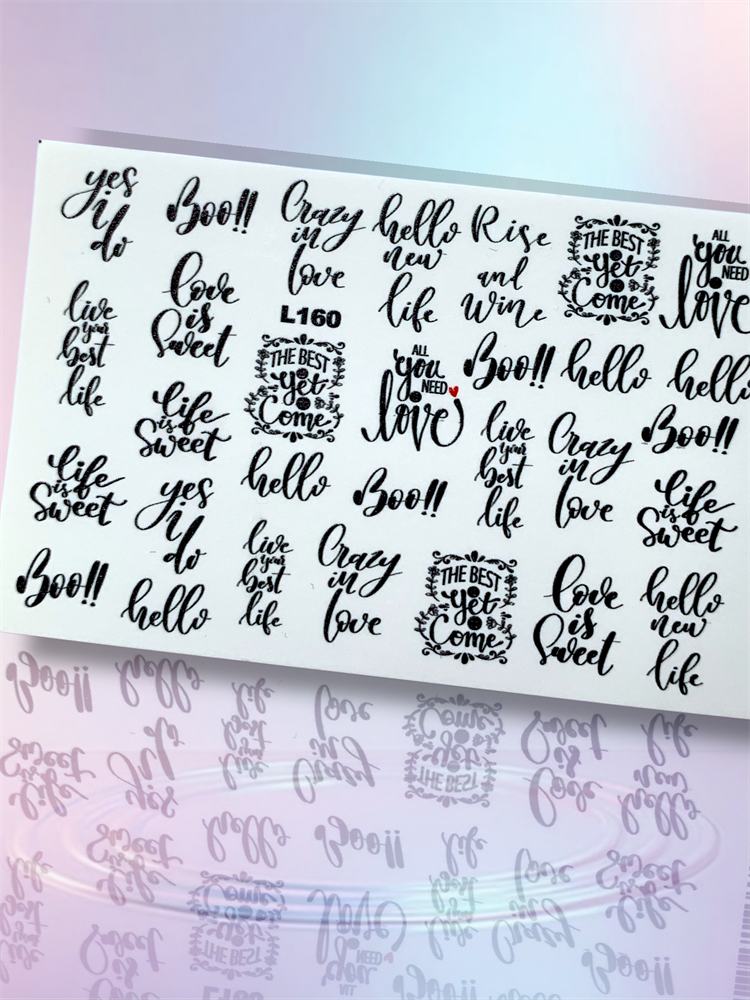 yes
i
do
Boo!!
Crazy
in
love
hello
new
life
Rise
and
Wine
THE BEST
yet
Come
ALL
you
NEED
love
live
your
best
life
love
is
Sweet
L160
THE BEST
yet
Come
ALL
you
NEED
love
Boo!!
hello
hello
life
is
Sweet
live
your
best
life
Crazy
in
love
Boo!!
life
is
Sweet
yes
i
do
hello
Boo!!
life
is
Sweet
Boo!!
hello
live
your
best
life
Crazy
in
love
THE BEST
yet
Come
love
is
Sweet
hello
new
life